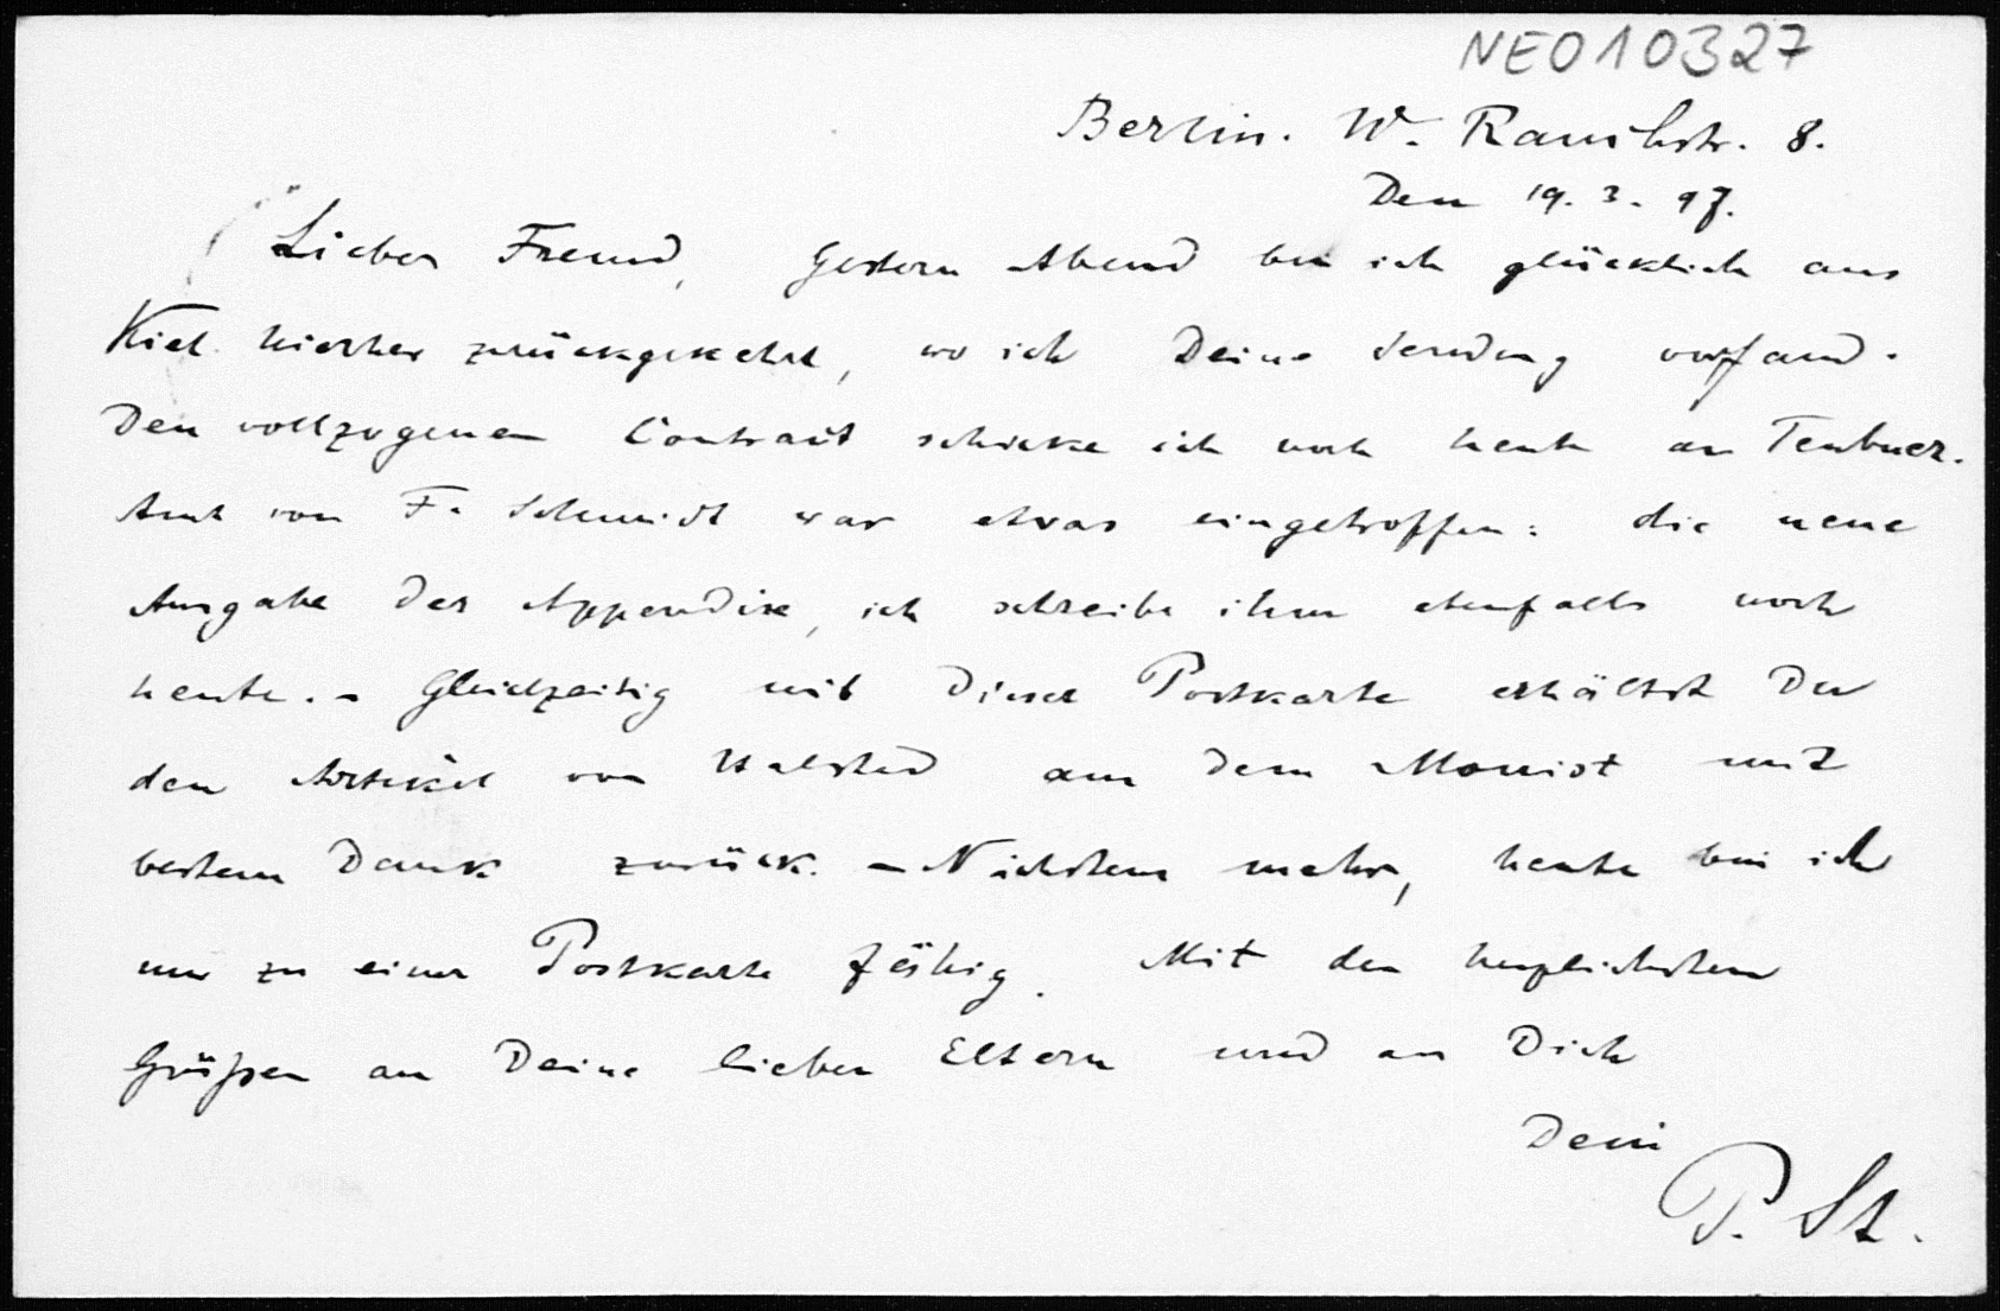 NEO10327
Berlin. W. Rauchstr. 8.
Den 19. 3. 97.
Lieber Freund, Gestern Abend bin ich glücklich aus
Kiel hierher zurückgekehrt, wo ich Deine Sendung vorfand.
Den vollzogenen Contract schicke ich noch heute an Teubner.
Auch von F. Schmidt war etwas eingetroffen: die neue
Ausgabe des Appendix, ich schreibe ihm ebenfalls noch
heute. - Gleichzeitig mit dieser Postkarte erhältst Du
den Artikel von Halsted aus dem Monist mit
bestem Dank zurück. - Nächstens mehr, heute bin ich
nur zu einer Postkarte fähig. Mit den herzlichsten
Grüßen an Deine lieben Eltern und an Dich
Dein
P. St.